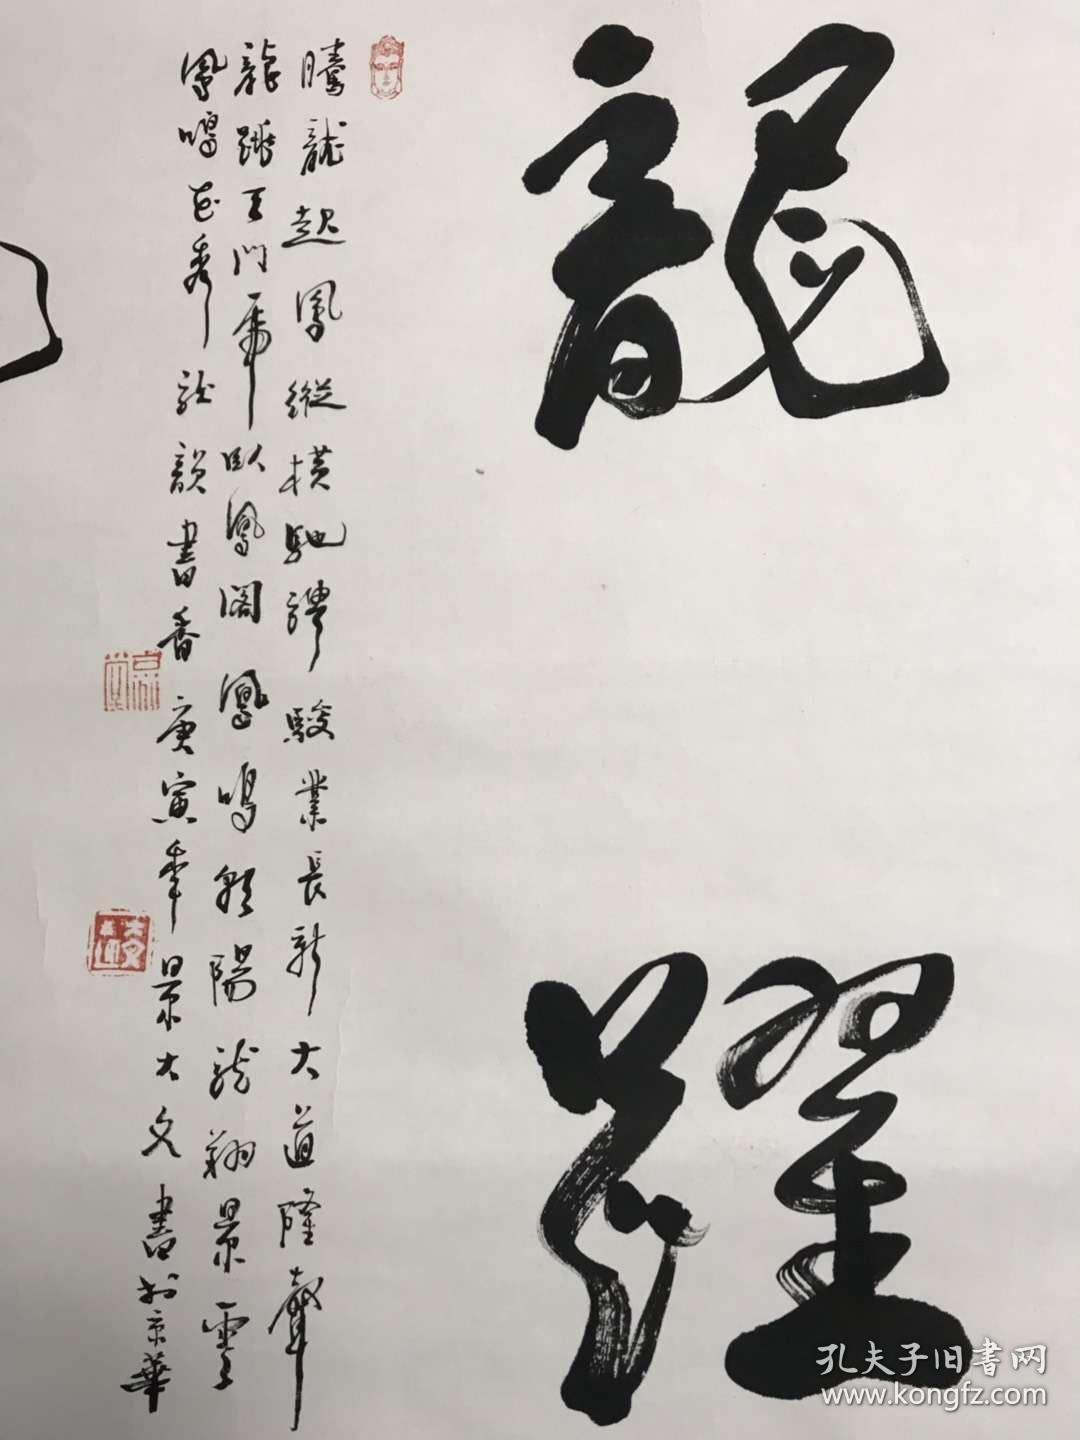 龍躍
騰龍起鳳縱橫馳騁駿業長新大道隆聲
龍跳天門虎臥鳳閣鳳鳴朝陽龍翔景雲
鳳鳴花香龍韻書香庚寅年景大文書於京華
孔夫子旧書网
www.kongfz.com